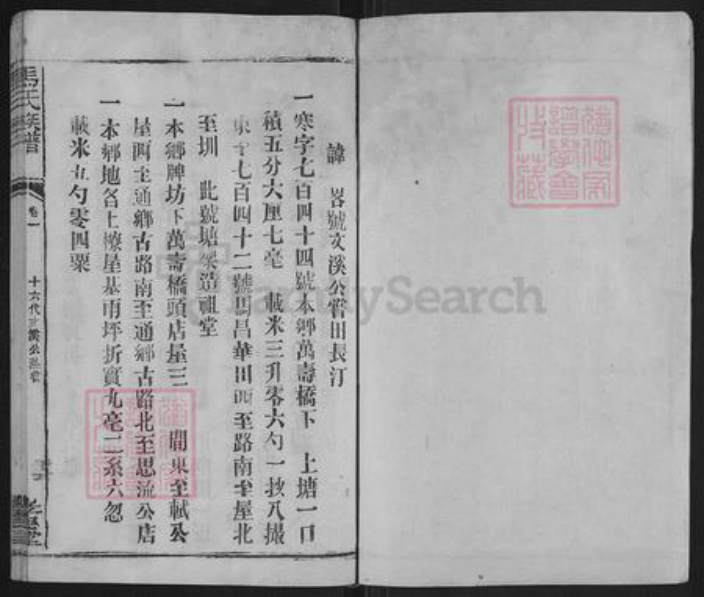 諱畧號文溪公嘗田長汀
一寒字七百四十四號本鄉萬壽橋下 上塘一口
積五分六厘七毫 載米三升零六勺一抄八撮
東至七百四十二號馬昌華田西至路南至屋北
至圳 此號塘築造祖堂
一本鄉牌坊下萬壽橋頭店屋三間東至軾公
屋西至通鄉古路南至通鄉古路北至思流公店
一本鄉地名上寮屋基雨坪折實九毫二系六忽
載米五勺零四粟
馬氏族譜
卷一
十六代文溪公嘗
FamilySearch